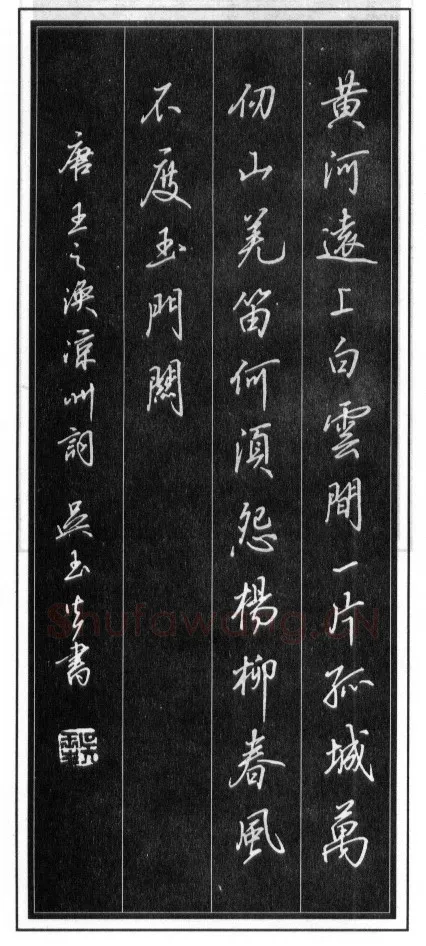 黄河遠上白雲間一片孤城萬
仞山羌笛何須怨楊柳春風
不度玉門關
唐王之渙涼州詞 吳玉生書
Shufawang.CN